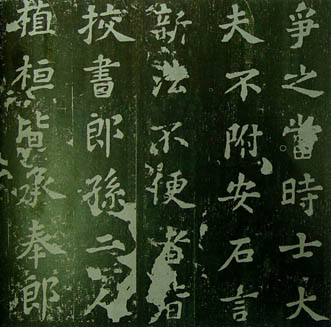 爭之當時士大
夫不附安石言
新法不便者皆
挍書郎孫二人
植桓皆承奉郎